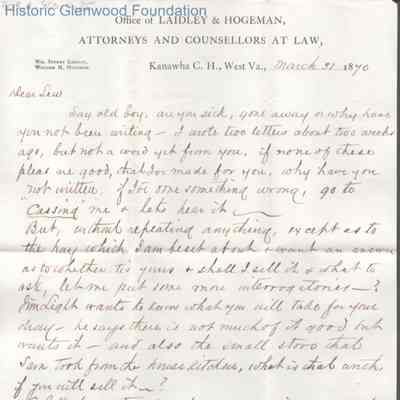 Historic Glenwood Foundation
Office of LAIDLEY & HOGEMAN,
ATTORNEYS AND COUNSELLORS AT LAW,
WM. SYDNEY LAIDLEY,
WILLIAM H. HOGEMAN.
Kanawha C. H., West Va., March 31 1870
Dear Lew
Say old boy, are you sick, gone away or why have
you not been writing — I wrote two letters about two weeks
ago, but not a word yet from you, if none of these
pleas are good, that I've made for you, why have you
not written, if I've done something wrong, go to
"Cassing" me & lets hear it —
But, without repeating anything, except as to
the hay which I am beset about & want an answer
as to whether tis yours & shall I sell it & what to
ask, let me put some more interrogatories —?
Jim Light wants to know what you will take for your
hay — he says there is not much of it good but
wants it — and also the small stove that
Sam took from the house kitchen, what is that worth
if you will sell it —?